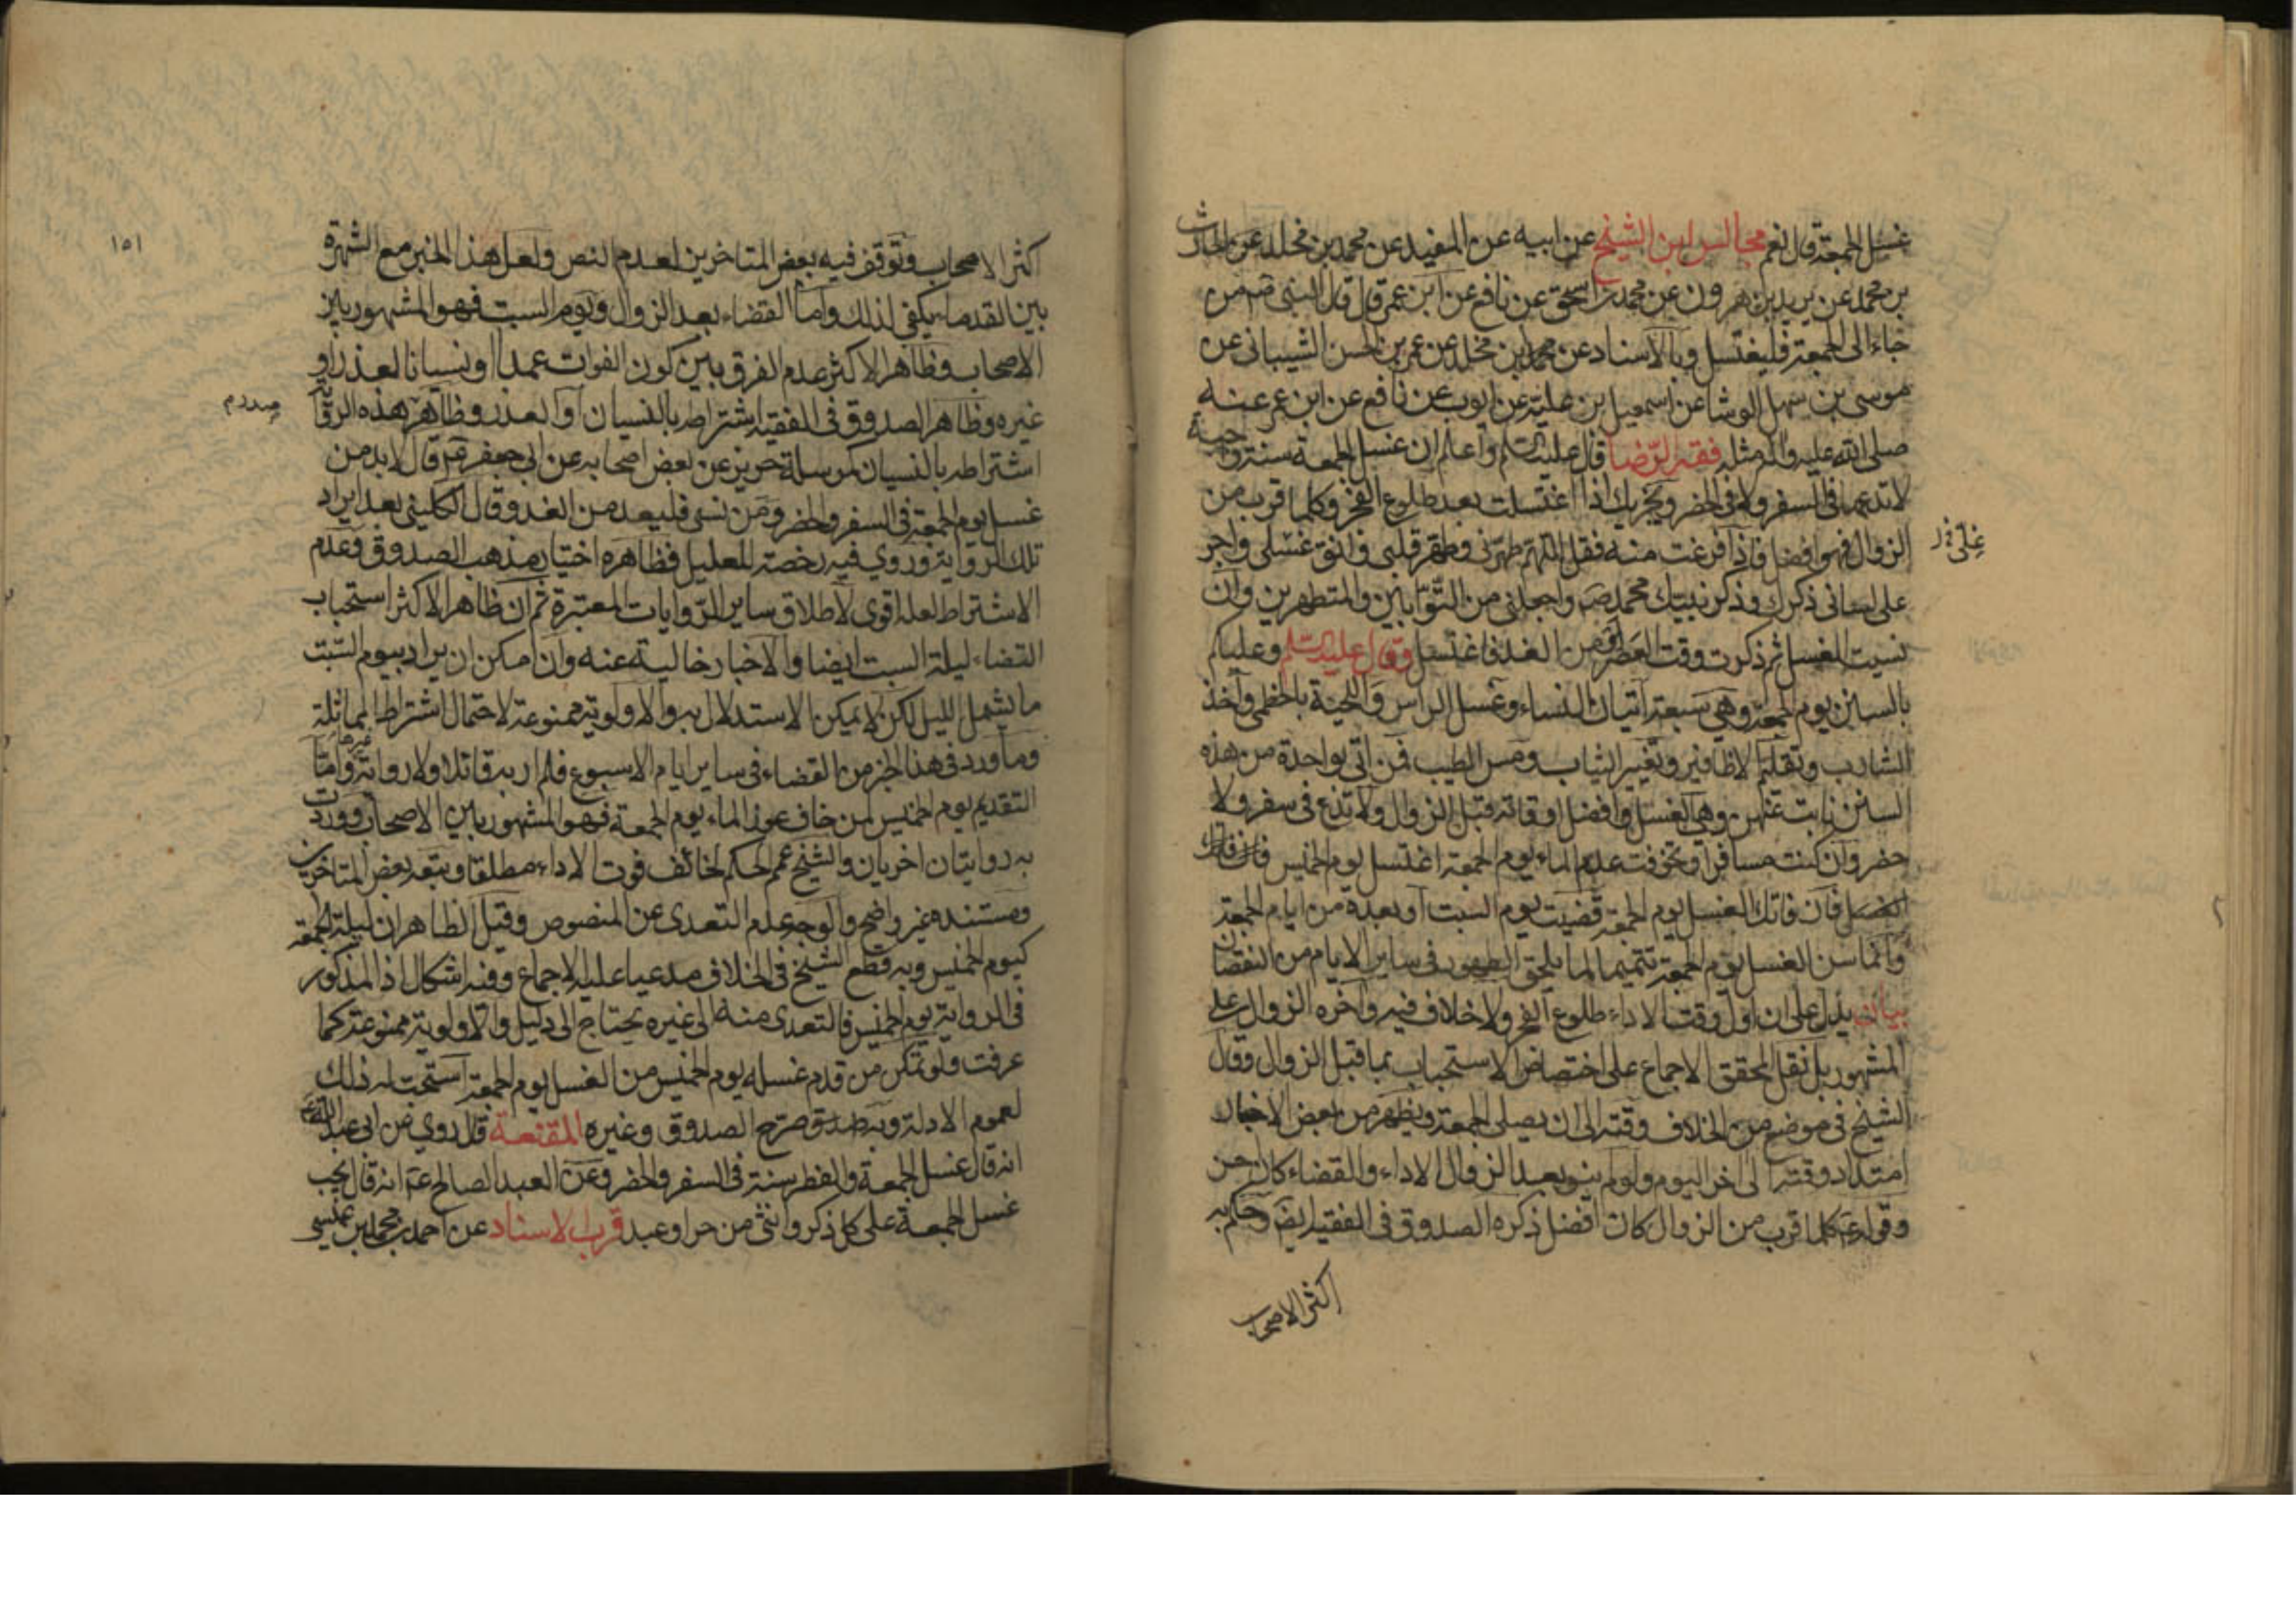 غسل الجمعة قال نعم مجالس ابن الشيخ عن ابيه عن المفيد عن محمد بن مخلد عن الحارث
بن محمد عن يزيد بن هرون عن محمد بن اسحق عن نافع عن ابن عمر قال قال النبي ص من
جاء الى الجمعة فليغتسل وبالاسناد عن محمد بن مخلد عن عمر بن الحسن الشيباني عن
موسى بن سهل الوشا عن اسمعيل بن علية عن ايوب عن نافع عن ابن عمر عنه
صلى الله عليه وآله مثله فقه الرضا قال عليه السلم واعلم ان غسل الجمعة سنة واجبة
لا تدعها في السفر ولا في الحضر ويجزيك اذا اغتسلت بعد طلوع الفجر وكلما قرب من
الزوال فهو افضل فاذا فرغت منه فقل اللهم طهرني وطهر قلبي وانق غسلي واجر
على لساني ذكرك وذكر نبيك محمد ص واجعلني من التوابين والمتطهرين وان
نسيت الغسل ثم ذكرت وقت العصر او من الغد فاغتسل وقال عليه السلم وعليكم
بالسنن يوم الجمعة وهي سبعة اتيان النساء وغسل الراس واللحية بالخطمي واخذ
الشارب وتقليم الاظافير وتغيير الثياب ومس الطيب فمن اتى بواحدة من هذه
السنن نابت عنهن وهي الغسل وافضل اوقاته قبل الزوال ولا تدع في سفر ولا
حضر وان كنت مسافرا وتخوفت عدم الماء يوم الجمعة اغتسل يوم الخميس فان فاتك
الغسل فان فاتك الغسل يوم الجمعة قضيت يوم السبت او بعده من ايام الجمعة
وانما سن الغسل يوم الجمعة تتميما لما يلحق الطهور في ساير الايام من النقصان
بيان يدل على ان اول وقت الاداء طلوع الفجر ولا خلاف فيه وآخره الزوال على
المشهور بل نقل المحقق الاجماع على اختصاص الاستحباب بما قبل الزوال وقال
الشيخ في موضع من الخلاف وقته الى ان يصلي الجمعة ويظهر من بعض الاخبار
امتداد وقته الى اخر اليوم ولو لم ينو بعد الزوال الاداء والقضاء كان احسن
وقوله ع كلما قرب من الزوال كان افضل ذكره الصدوق في الفقيه ايضا وحكم به
اكثر الاصحاب
١٥١
اكثر الاصحاب وتوقف فيه بعض المتاخرين لعدم النص ولعل هذا الخبر مع الشهرة
بين القدماء يكفي لذلك واما القضاء بعد الزوال ويوم السبت فهو المشهور بين
الاصحاب وظاهر الاكثر عدم الفرق بين كون الفوات عمدا او نسيانا لعذر او
غيره وظاهر الصدوق في الفقيه اشتراطه بالنسيان او العذر وظاهر هذه الرواية
اشتراطه بالنسيان كمرسلة حريز عن بعض اصحابه عن ابي جعفر ع قال لا بد من
غسل يوم الجمعة في السفر والحضر ومن نسي فليعد من الغد وقال الكليني بعد ايراد
تلك الرواية وروي فيه رخصة للعليل فظاهره اختيار مذهب الصدوق وعدم
الاشتراط لعله اقوى لاطلاق ساير الروايات المعتبرة ثم ان ظاهر الاكثر استحباب
القضاء ليلة السبت ايضا والاخبار خالية عنه وان امكن ان يراد بيوم السبت
ما يشمل الليل لكن لا يمكن الاستدلال به والاولوية ممنوعة لاحتمال اشتراط المماثلة
وما ورد في هذا الخبر من القضاء في ساير ايام الاسبوع فلم ار به قائلا ولا رواية غيرها واما
التقديم يوم الخميس لمن خاف عوز الماء يوم الجمعة فهو المشهور بين الاصحاب ووردت
به روايتان اخريان والشيخ عمم الحكم لخائف فوت الاداء مطلقا وتبعه بعض المتاخرين
ومستنده غير واضح والوجه عدم التعدي عن المنصوص وقيل الظاهر ان ليلة الجمعة
كيوم الخميس وبه قطع الشيخ في الخلاف مدعيا عليه الاجماع وفيه اشكال اذ المذكور
في الرواية يوم الخميس فالتعدي منه الى غيره يحتاج الى دليل والاولوية ممنوعة كما
عرفت ولو تمكن من قدم غسله يوم الخميس من الغسل يوم الجمعة استحب له ذلك
لعموم الادلة وبه صرح الصدوق وغيره المقنعة قال روي عن ابي عبد الله ع
انه قال غسل الجمعة والفطر سنة في السفر والحضر وعن العبد الصالح ع انه قال يجب
غسل الجمعة على كل ذكر وانثى من حر او عبد قرب الاسناد عن احمد بن محمد بن عيسى